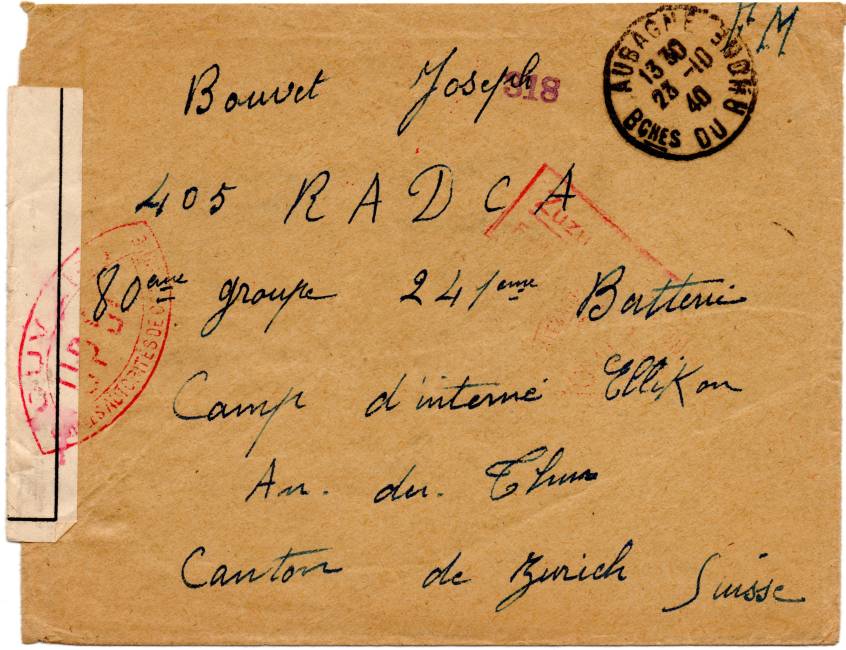 F M
AUBAGNE
13 30
23 -10
40
BCHES DU RHONE
Bouvet Joseph
318
405 R A D C A
80eme groupe 241eme Batterie
Camp d'interné Ellikon
An. der. Thur
Canton de Zurich Suisse
OUV
AUTORITÉS DE